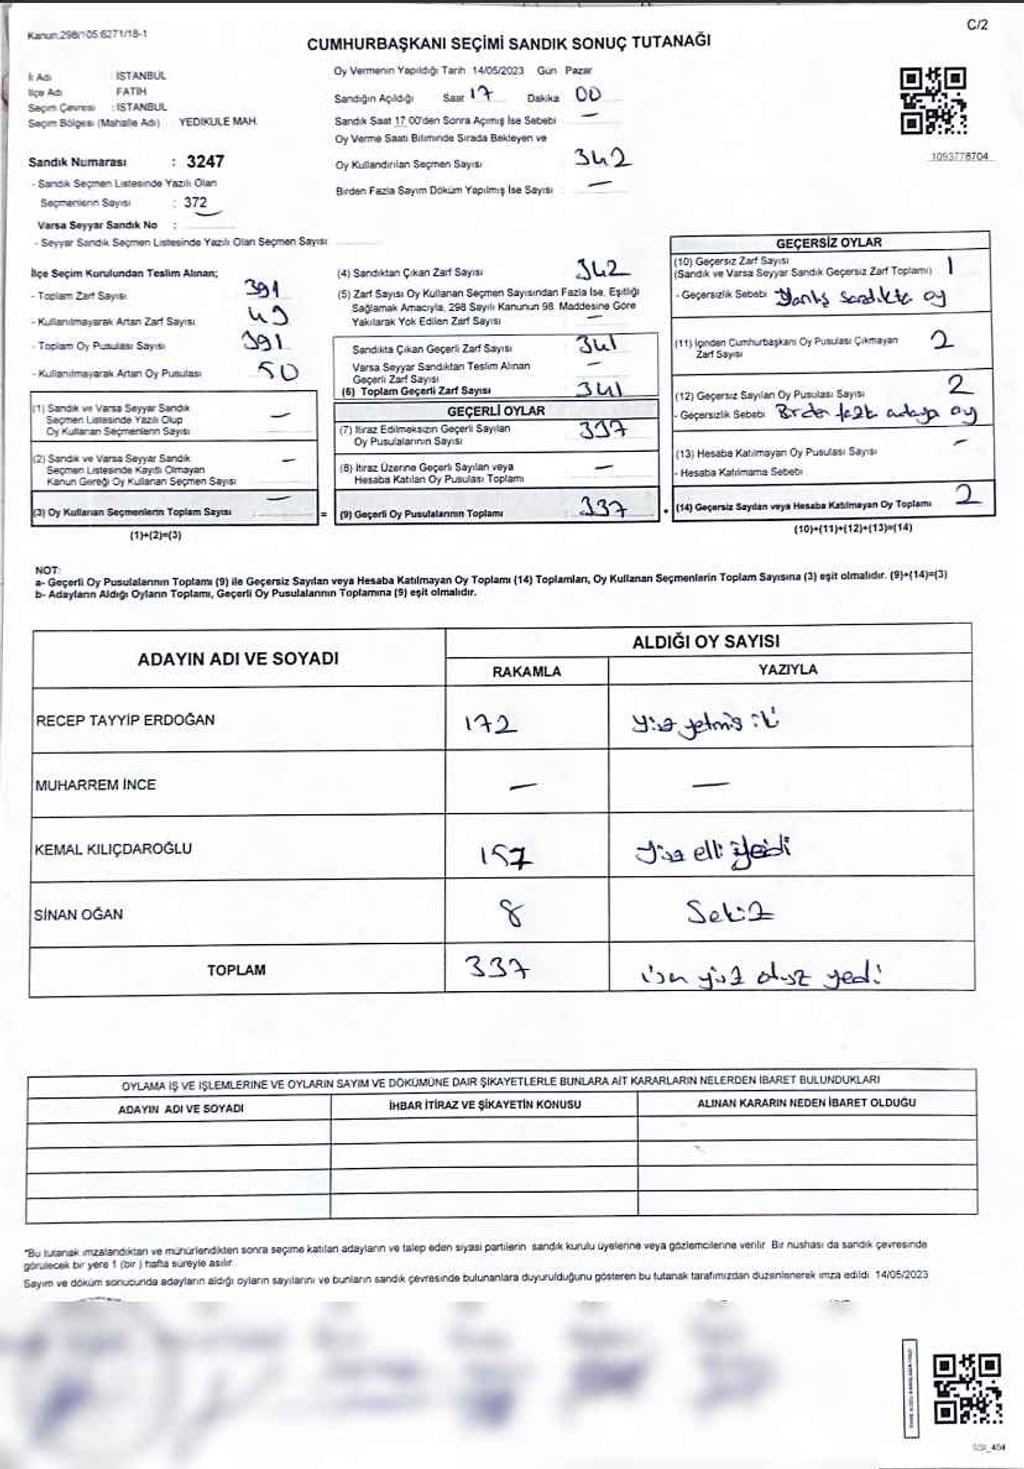 Kanun:298/105 6271/18-1
C/2
CUMHURBAŞKANI SEÇİMİ SANDIK SONUÇ TUTANAĞI
İl Adı : İSTANBUL
İlçe Adı : FATİH
Seçim Çevresi : İSTANBUL
Seçim Bölgesi (Mahalle Adı) : YEDİKULE MAH.
Sandık Numarası : 3247
- Sandık Seçmen Listesinde Yazılı Olan
Seçmenlerin Sayısı : 372
Varsa Seyyar Sandık No :
- Seyyar Sandık Seçmen Listesinde Yazılı Olan Seçmen Sayısı
Oy Vermenin Yapıldığı Tarih 14/05/2023 Gün Pazar
Sandığın Açıldığı Saat 17 Dakika 00
Sandık Saat 17 00'den Sonra Açımış İse Sebebi —
Oy Verme Saati Bitiminde Sırada Bekleyen ve
Oy Kullandırılan Seçmen Sayısı 342
Birden Fazla Sayım Döküm Yapılmış İse Sayısı —
1093778704
İlçe Seçim Kurulundan Teslim Alınan;
- Toplam Zarf Sayısı 391
- Kullanılmayarak Artan Zarf Sayısı 49
- Toplam Oy Pusulası Sayısı 391
- Kullanılmayarak Artan Oy Pusulası 50
(1) Sandık ve Varsa Seyyar Sandık
Seçmen Listesinde Yazılı Olup
Oy Kullanan Seçmenlerin Sayısı —
(2) Sandık ve Varsa Seyyar Sandık
Seçmen Listesinde Kayıtlı Olmayan
Kanun Gereği Oy Kullanan Seçmen Sayısı —
(3) Oy Kullanan Seçmenlerin Toplam Sayısı —
(1)+(2)=(3)
(4) Sandıktan Çıkan Zarf Sayısı 342
(5) Zarf Sayısı Oy Kullanan Seçmen Sayısından Fazla İse, Eşitliği
Sağlamak Amacıyla, 298 Sayılı Kanunun 98. Maddesine Göre
Yakılarak Yok Edilen Zarf Sayısı —
Sandıkta Çıkan Geçerli Zarf Sayısı 341
Varsa Seyyar Sandıktan Teslim Alınan
Geçerli Zarf Sayısı —
(6) Toplam Geçerli Zarf Sayısı 341
GEÇERLİ OYLAR
(7) İtiraz Edilmeksizin Geçerli Sayılan
Oy Pusulalarının Sayısı 337
(8) İtiraz Üzerine Geçerli Sayılan veya
Hesaba Katılan Oy Pusulası Toplamı —
= (9) Geçerli Oy Pusulalarının Toplamı 337
GEÇERSİZ OYLAR
(10) Geçersiz Zarf Sayısı
(Sandık ve Varsa Seyyar Sandık Geçersiz Zarf Toplamı) 1
- Geçersizlik Sebebi Yanlış sandıkta oy
(11) İçinden Cumhurbaşkanı Oy Pusulası Çıkmayan
Zarf Sayısı 2
(12) Geçersiz Sayılan Oy Pusulası Sayısı 2
- Geçersizlik Sebebi Birden fazla adaya oy
(13) Hesaba Katılmayan Oy Pusulası Sayısı —
- Hesaba Katılmama Sebebi
+ (14) Geçersiz Sayılan veya Hesaba Katılmayan Oy Toplamı 2
(10)+(11)+(12)+(13)=(14)
NOT:
a- Geçerli Oy Pusulalarının Toplamı (9) ile Geçersiz Sayılan veya Hesaba Katılmayan Oy Toplamı (14) Toplamları, Oy Kullanan Seçmenlerin Toplam Sayısına (3) eşit olmalıdır. (9)+(14)=(3)
b- Adayların Aldığı Oyların Toplamı, Geçerli Oy Pusulalarının Toplamına (9) eşit olmalıdır.
ADAYIN ADI VE SOYADI
ALDIĞI OY SAYISI
RAKAMLA YAZIYLA
RECEP TAYYİP ERDOĞAN 172 Yüz yetmiş iki
MUHARREM İNCE — —
KEMAL KILIÇDAROĞLU 157 Yüz elli yedi
SİNAN OĞAN 8 Sekiz
TOPLAM 337 üç yüz otuz yedi
OYLAMA İŞ VE İŞLEMLERİNE VE OYLARIN SAYIM VE DÖKÜMÜNE DAİR ŞİKAYETLERLE BUNLARA AİT KARARLARIN NELERDEN İBARET BULUNDUKLARI
ADAYIN ADI VE SOYADI İHBAR İTİRAZ VE ŞİKAYETİN KONUSU ALINAN KARARIN NEDEN İBARET OLDUĞU
"Bu tutanak imzalandıktan ve mühürlendikten sonra seçime katılan adayların ve talep eden siyasi partilerin sandık kurulu üyelerine veya gözlemcilerine verilir. Bir nüshası da sandık çevresinde
görülecek bir yere 1 (bir ) hafta süreyle asılır.
Sayım ve döküm sonucunda adayların aldığı oyların sayılarını ve bunların sandık çevresinde bulunanlara duyurulduğunu gösteren bu tutanak tarafımızdan düzenlenerek imza edildi 14/05/2023